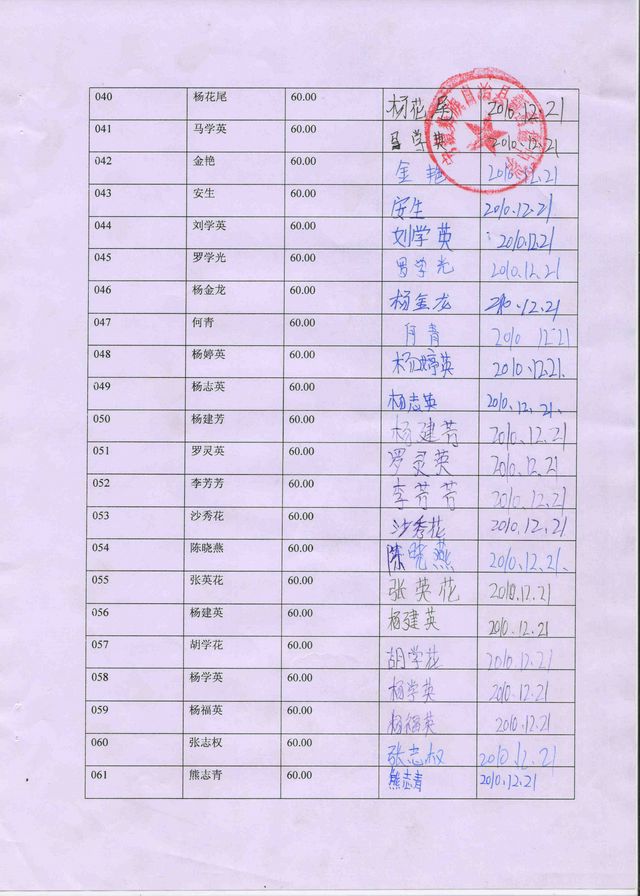 040 杨花尾 60.00 杨花尾 2010.12.21
041 马学英 60.00 马学英 2010.12.21
042 金艳 60.00 金艳 2010.12.21
043 安生 60.00 安生 2010.12.21
044 刘学英 60.00 刘学英 2010.12.21
045 罗学光 60.00 罗学光 2010.12.21
046 杨金龙 60.00 杨金龙 2010.12.21
047 何青 60.00 何青 2010 12.21
048 杨婷英 60.00 杨婷英 2010.12.21.
049 杨志英 60.00 杨志英 2010.12.21.
050 杨建芳 60.00 杨建芳 2010.12.21
051 罗灵英 60.00 罗灵英 2010.12.21
052 李芳芳 60.00 李芳芳 2010.12.21
053 沙秀花 60.00 沙秀花 2010.12.21
054 陈晓燕 60.00 陈晓燕 2010.12.21.
055 张英花 60.00 张英花 2010.12.21
056 杨建英 60.00 杨建英 2010.12.21
057 胡学花 60.00 胡学花 2010.12.21
058 杨学英 60.00 杨学英 2010.12.21
059 杨福英 60.00 杨福英 2010.12.21
060 张志权 60.00 张志权 2010.12.21
061 熊志青 60.00 熊志青 2010.12.21
族自治县